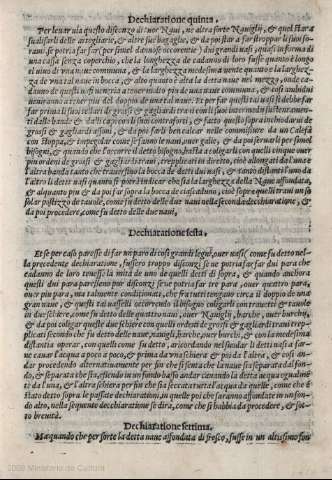 Dechiaratione quinta.
Per leuar uia questo disconzo di tuor Naui, ne altra sorte Nauiglij, & quel star a
su disarli delle artegliarie, & altre sue bagaglie, & da poi a far stroppar le sue sora
ni. se potria far far (per simel danose occorrente) dui grandi uasi, quasi in forma di
una cassa senza coperchio, che la longhezza de cadauno di loro fusse quanto è longo
el uiuo di una naue commune, & la larghezza medesimamente quanto è la larghez
za de una naue in basso, & tanto è alta la detta una naue nel mezzo, onde cada
duno de questi uasi ueneria a tener molto piu de una naue commune, & cosi ambidui
ueneriano a tener piu del doppio de una tal naue. Et per far questi tai uasi se debbe far
far prima li suoi telari de grossi & gagliardi traui con li suoi intermedij fusti tramez
ti dalle bande & dalli capi con li suoi contraforti, & fatto questo sopra inchiodarui de
grossi & gagliardi assoni, & da poi farli ben calcar nelle commissure da un Calefà
con stoppa, & impegolar come se fanno le naui, ouer galie, & da poi seruarle per simel
bisogni, & quando che l'occorre il detto bisogno, basta a colegarli con quelli cinque ouer
piu ordeni de grossi & gagliardi traui, treppidicati in diretto, cioè allongati dal'una e
l'altra banda tanto che trauersino la bocca de detti dui uasi, & tanto distanti l'uno dal
l'altro li detti uasi quanto si porrà indicar che sia la larghezza della Naue affondata,
& alquanto piu & da poi far sopra la bocca de cadaduno, cioè sopra quelli traui un so
solar postizzo de tauole, como fu detto delle due naui nella seconda dechiaratione, &
da poi procedere, come fu detto delle due naui,
Dechiaratione sesta,
Et se per caso paresse di far un paro di cosi grandi legni, ouer uasi, come fu detto nel
la precedente dechiaratione, fussero troppo disconzi se ne potria far far dui para che
cadauno de loro tenesse la mità de uno de quelli detti di sopra, & quando anchora
questi dui para paresseno pur disconzi se ne potria far tre para, ouer quattro para,
ouer piu para, ma talmente conditionati, che tra tutti tengano circa il doppio de una
gran naue. & questi tai uaselli occorrendo il bisogno colegarli con trauette & tauole
in due schiere, como fu detto delle quattro naui, ouer Nauiglij, barche, ouer burchij,
& da poi coligar quelle due schiere con quelli ordeni de grossi & gagliardi traui trep-
plicati secondo che fu detto delle naue, nauiglij, barche, ouer burchi, & con la medesima
distantia operar, con quelli come fu detto, arricordando nel fondar li detti uasi a far-
ne cauar l'acqua a poco a poco, & prima da una schiera & poi da l'altra, & cosi an-
dar procedendo alternatamente per fin che si senta che la naue sia separata dal fon-
do, & separata che sia, essendo in un fondo basso andar cauando la detta acqua egualmen
te da l'una, & l'altra schiera per fin che sia seccata tutta l'acqua da quelle, come che è
stato detto sopra le passate dechiarationi, in quelle poi che saranno affondate in un son-
do alto, nella sequente decchiaratione se dirà, come che si habbia da procedere, & sot-
to breuità.
Dechiaratione settima.
Ma quando che per sorte la detta naue affondata di fresco, fusse in un altissimo fon-
2009 Ministerio de Cultura